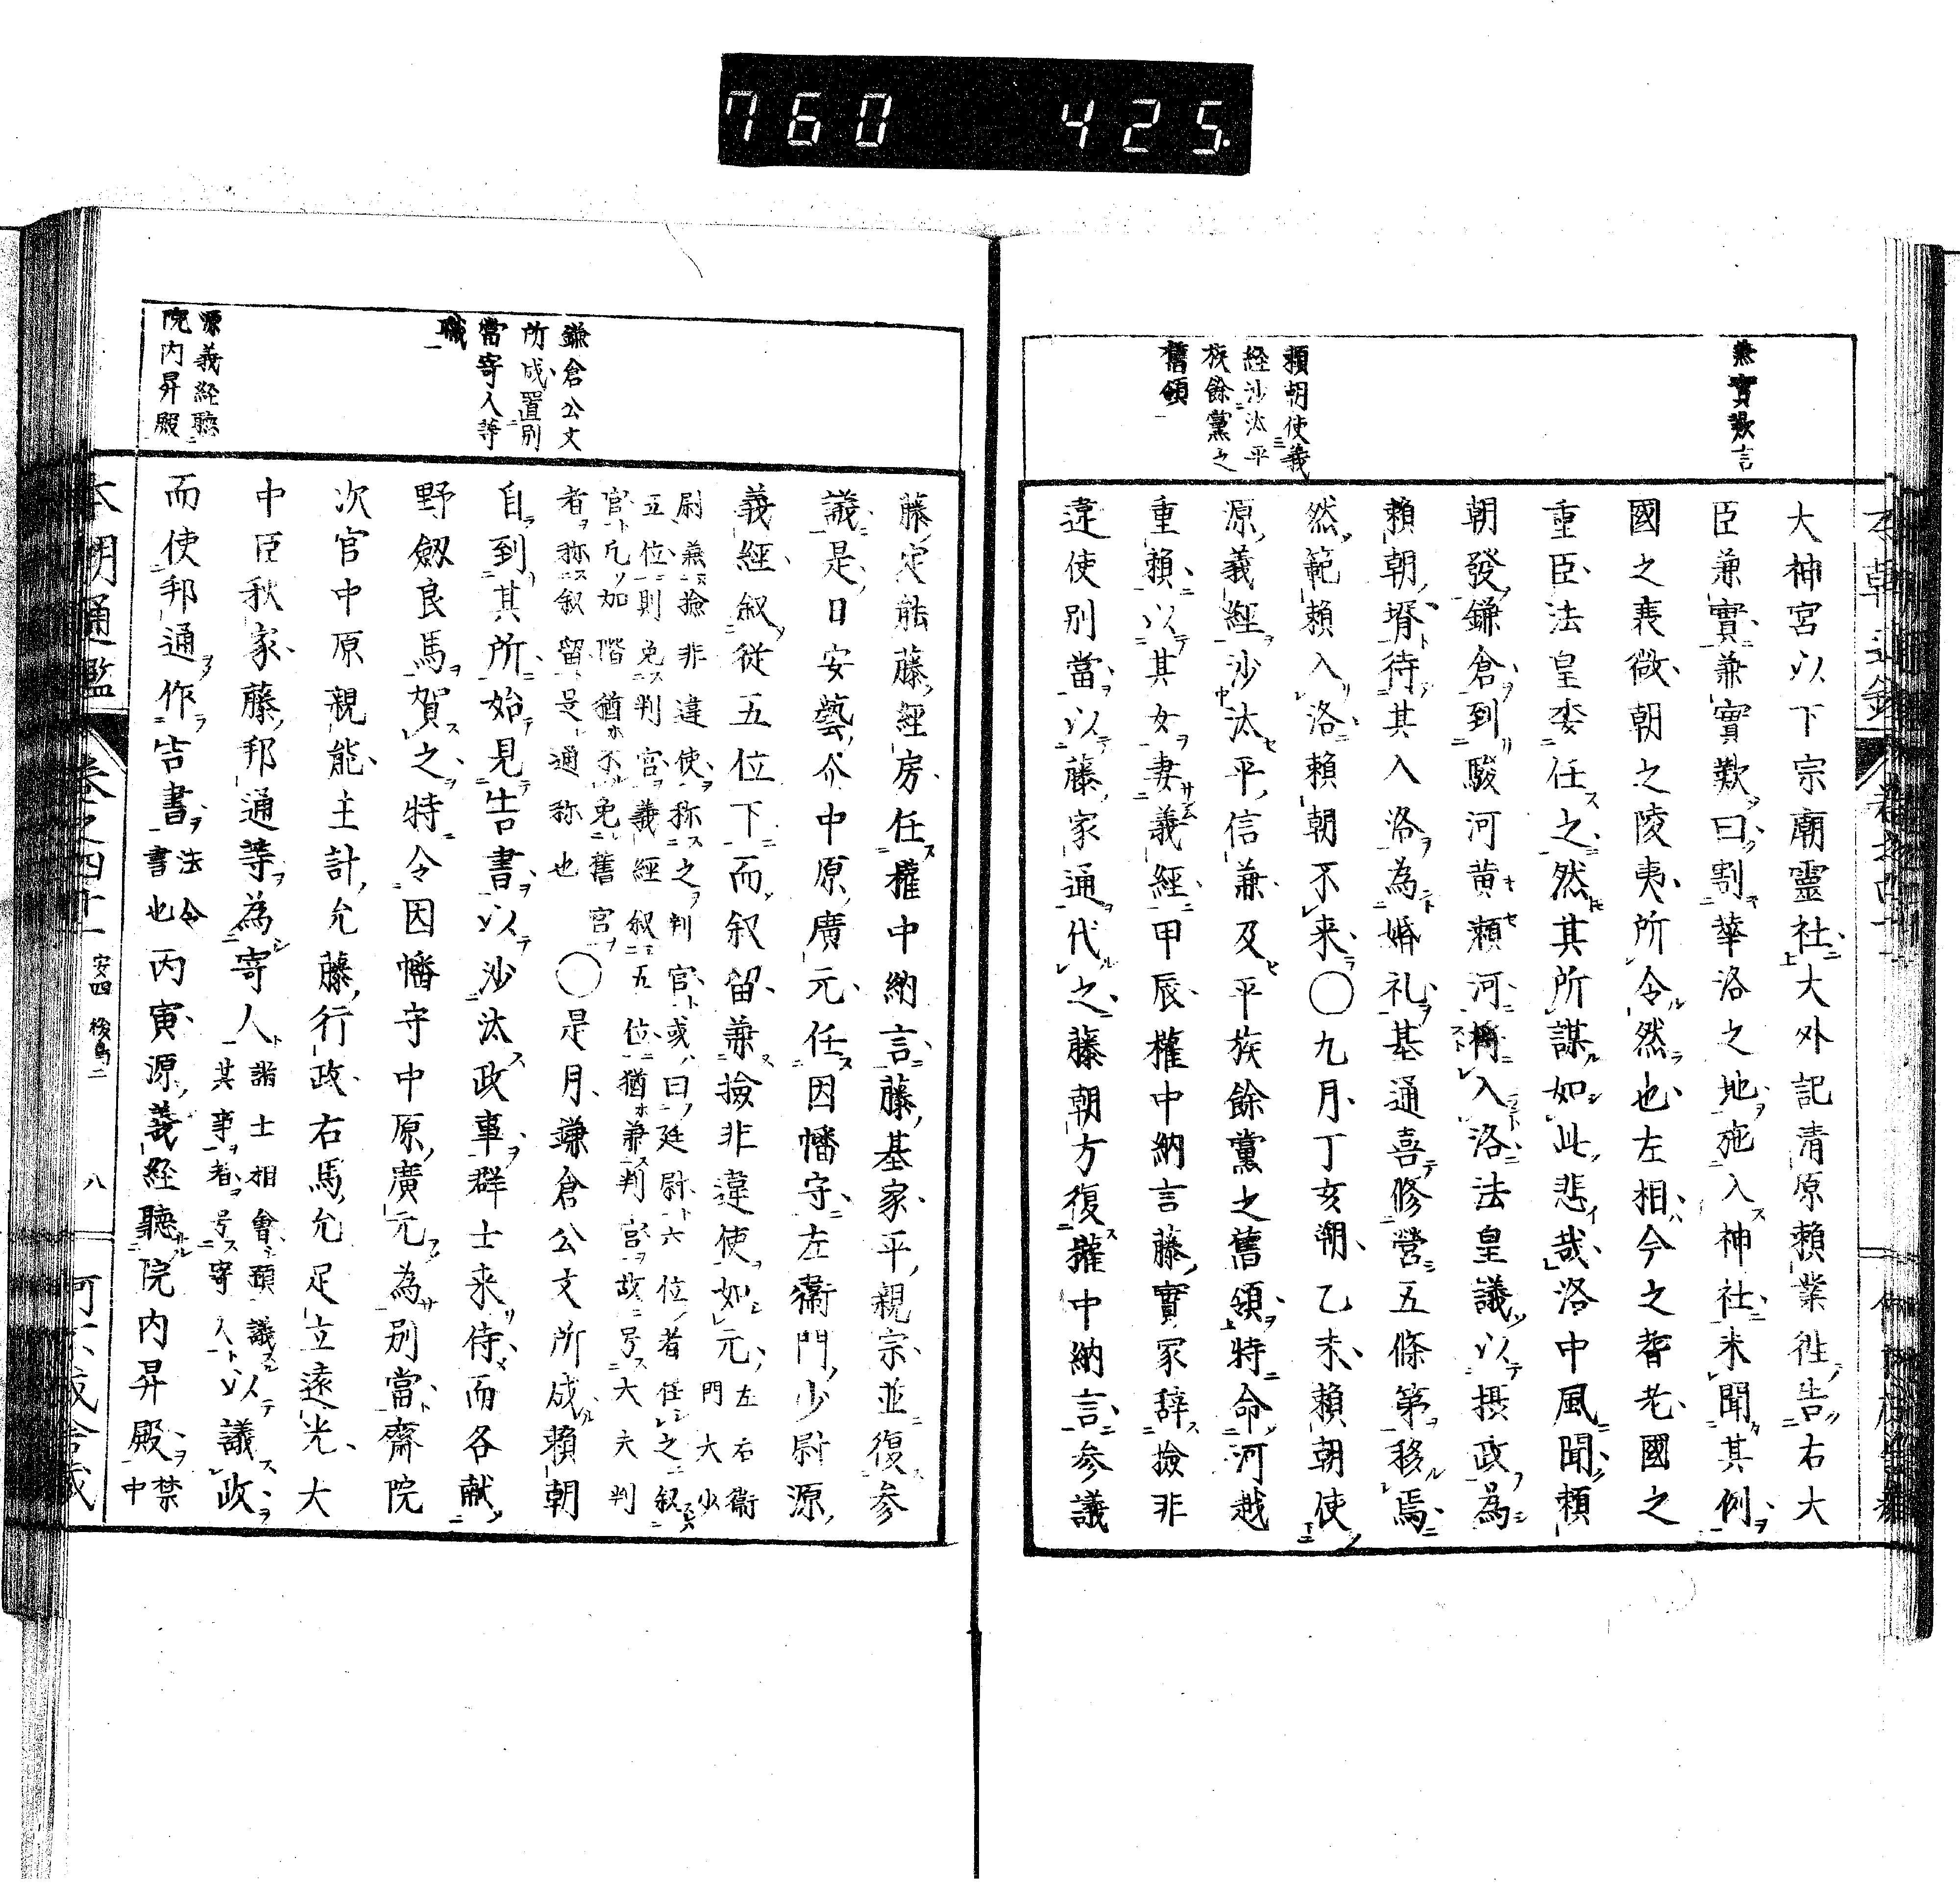 760 425
兼實歎言
頼朝使義
経沙汰平
族餘黨之
舊領
大神宮以下宗廟靈社大外記清原頼業徃告右大
臣兼實兼實歎曰割華洛之地施入神社未聞其例
國之衰微朝之陵夷所令然也左相今之耆老國之
重臣法皇委任之然其所謀如此悲哉洛中風聞頼
朝發鎌倉到駿河黄瀬河將入洛法皇議以摂政為
頼朝壻待其入洛為婚礼基通喜修營五條第移焉
然範頼入洛頼朝不来〇九月丁亥朔乙未頼朝使
源義經沙汰平信兼及平族餘黨之舊領特命河越
重頼以其女妻義經甲辰權中納言藤實家辞撿非
違使別當以藤家通代之藤朝方復權中納言参議
鎌倉公文
所成置別
當寄人等
職
源義経聴
院内昇殿
藤定能藤經房任權中納言藤基家平親宗並復参
議是日安藝介中原廣元任因幡守左衞門少尉源
義經叙従五位下而叙留兼撿非違使如元左右衞
門大少
尉兼撿非違使称之判官或曰廷尉六位者任之叙
五位則免判官義經叙五位猶兼判官故号大夫判
官凢加階猶不免舊官
者称叙留是通称也〇是月鎌倉公文所成頼朝
自到其所始見吿書以沙汰政事群士来侍而各献
野劔良馬賀之特令因幡守中原廣元為別當齋院
次官中原親能主計允藤行政右馬允足立遠元大
中臣秋家藤邦通等為寄人諸士相會預議以
其事者号寄人以議政
而使邦通作吿書法令
書也丙寅源義経聴院内昇殿禁
中
本朝通鑑 卷之四十一 安四 後鳥二 八